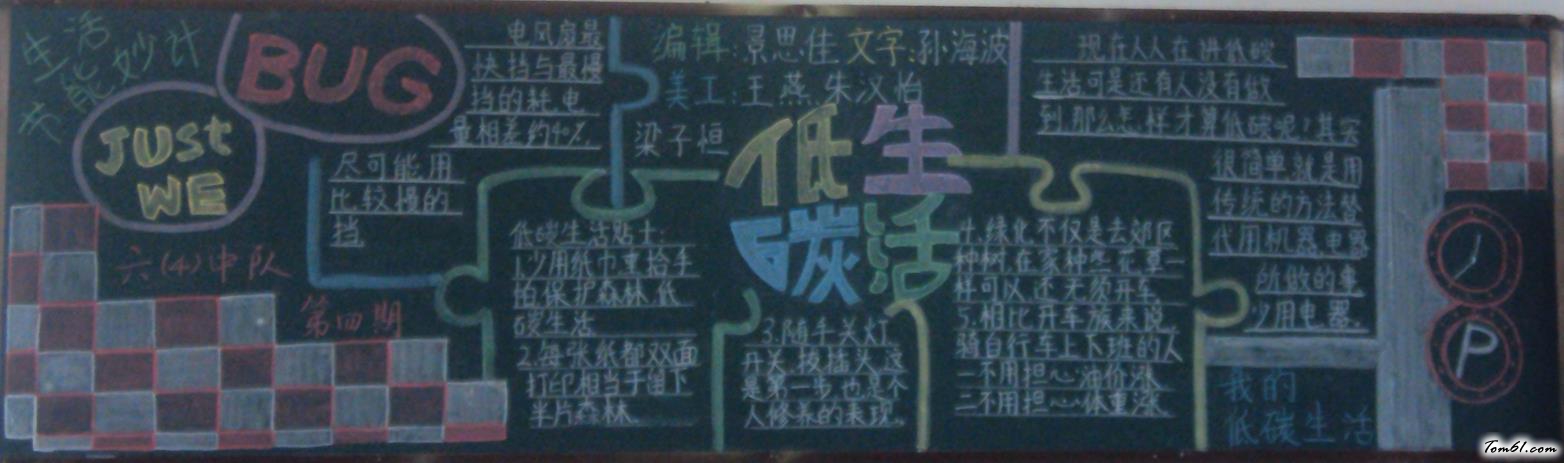 生活
妙计
节能
BUG
JUSt
WE
电风扇最
快挡与最慢
挡的耗电
量相差约40%.
尽可能用
比较慢的
挡.
六(4)中队
第四期
编辑:景思佳 文字:孙海波
美工:王燕,朱汉怡
梁子恒
低碳
生活
低碳生活贴士:
1.少用纸巾,重拾手
怕,保护森林,低
碳生活
2.每张纸都双面
打印相当于留下
半片森林.
3.随手关灯,
开关,拔插头,这
是第一步,也是个
人修养的表现.
4.绿化不仅是去郊区
种树,在家种些花草一
样可以,还无须开车.
5.相比开车族来说,
骑自行车上下班的人
一不用担心油价涨,
二不用担心体重涨.
现在人人在讲低碳
生活可是还有人没有做
到,那么怎样才算低碳呢!其实
很简单,就是用
传统的方法替
代用机器,电器
所做的事
少用电器.
P
我的
低碳生活
Tom61.com